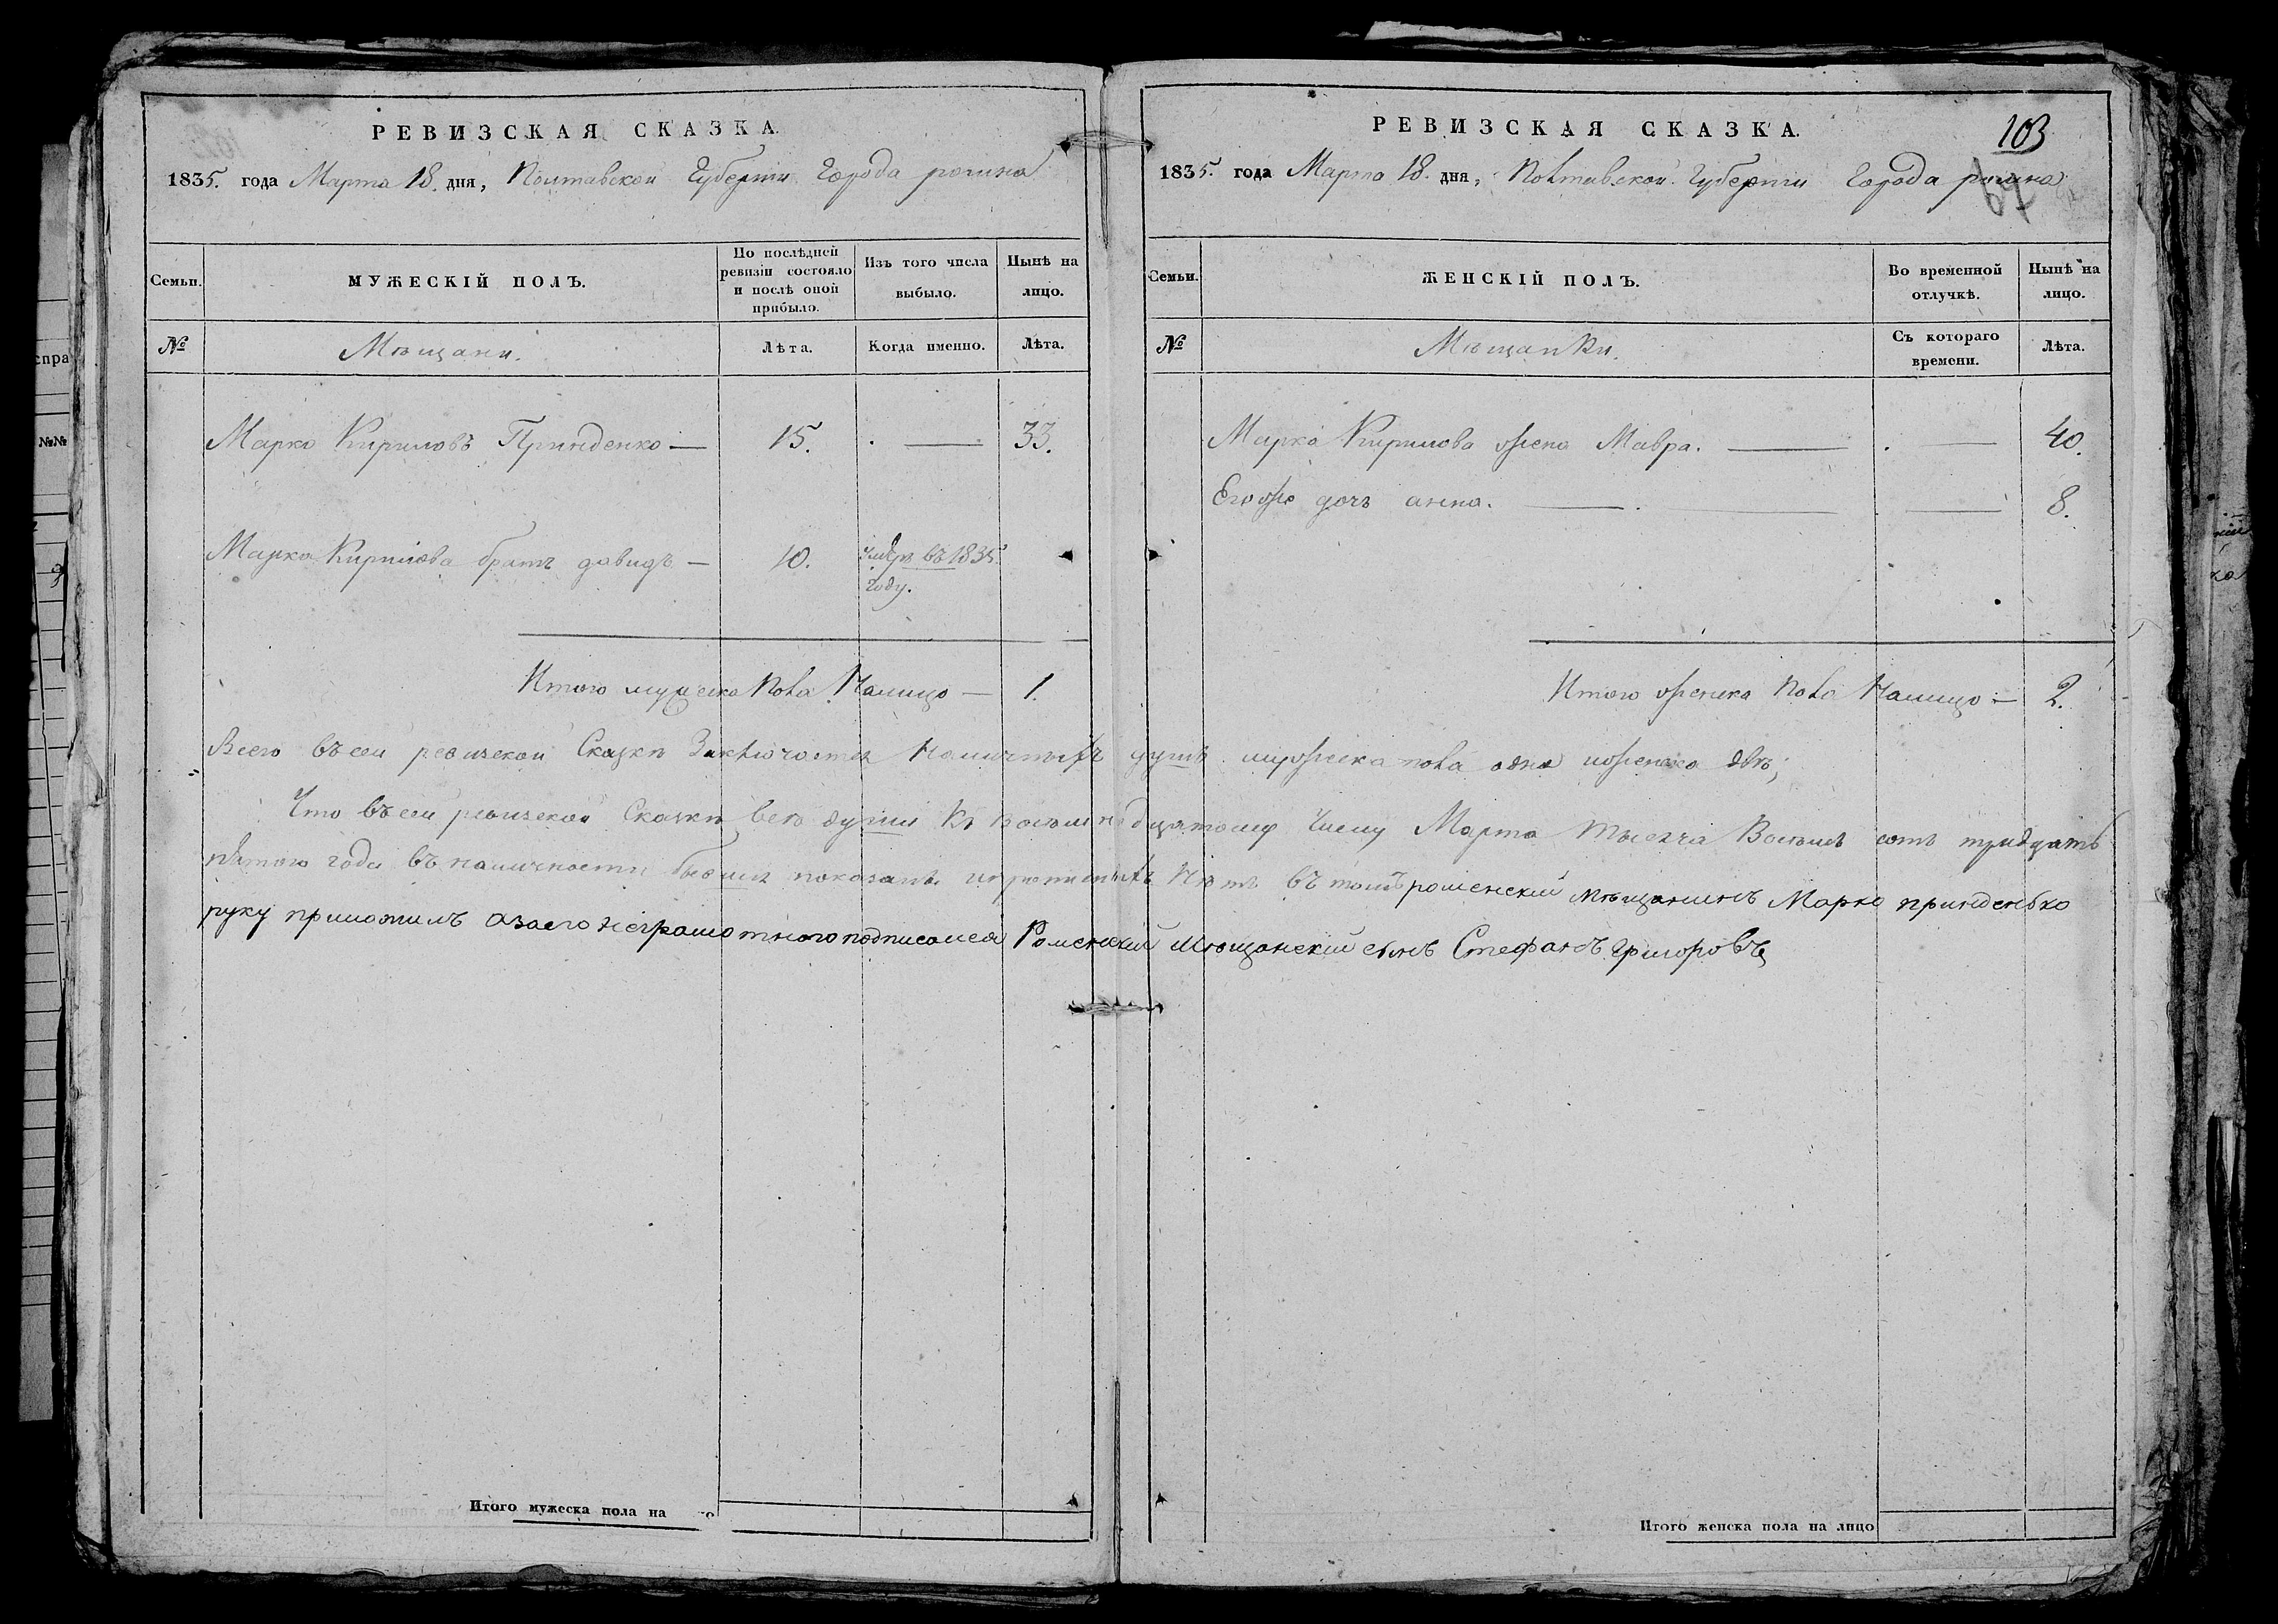 РЕВИЗСКАЯ СКАЗКА.
1835. года Марта 18. дня, Полтавской Губернии Города ромна
Семьи.
МУЖЕСКІЙ ПОЛЪ.
По послѣдней ревизіи состояло и послѣ оной прибыло.
Изъ того числа выбыло.
Нынѣ на лицо.
№
Мѣщани.
Лѣта.
Когда именно.
Лѣта.
Марко Кириловъ Принденко — 15. — 33.
Марка Кирилова братъ давидъ — 10. умре въ 1835. году.
Итого мужеска пола Налицо — 1.
РЕВИЗСКАЯ СКАЗКА.
103
1835. года Марта 18. дня, Полтавской Губернии Города ромна
Семьи.
ЖЕНСКІЙ ПОЛЪ.
Во временной отлучкѣ.
Нынѣ на лицо.
№
Мѣщанки.
Съ котораго времени.
Лѣта.
Марка Кирилова жена Мавра. — 40.
Егоже дочъ анна. — 8.
Итого женска пола Налицо — 2.
Всего въ сеи ревизскои Сказкѣ Заключается Наличныхъ душъ мужеска пола одна иженска двѣ;
Что въ сеи ревизскои Сказкѣ всѣ души Къ восемнадцатому Числу Марта Тысяча Восемъ сотъ тридцать
пятого года въ наличности бывши показаны ипрописныхъ Нѣтъ въ томъ роменский мѣщанинъ Марко принденько
руку приложилъ азаего неграмотного подписался Роменский мѣщанский сынъ Стефанъ григоровъ
Итого мужеска пола на
Итого женска пола на лицо